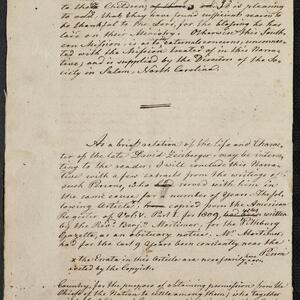 to the Children; It is pleasing
to add, that they have found sufficient reason to
be thankful to the Lord, for the blessing he has
laid on their Ministry. Otherwise this South-
ern Mission, is as to external concerns, unconnec-
ted with the Mission treated of in this Narra-
tive, and is supplied by the Directors of the So-
ciety in Salem, North Carolina.
As a brief relation of the Life and Charac-
ter of the late David Zeisberger, may be interes-
ting to the reader; I will conclude this Narra-
tive with a few extracts from the writings of
such Persons, who served with him in
the same cause for a number of Years. The fol-
lowing Article copied from the American
Register of Vol. V. Part I. for 1809, was written
by the Revd. Benjn. Mortimer, for the Pittsbg
Gazette, as an obituary notice. Mr. Mortimer
had for the last 9 Years been constantly near
x the Errata in this Article are necessarily
edited by the Copyist.
Country, for the purpose of obtaining permission from the
Chiefs of the Nation to settle among them; who together